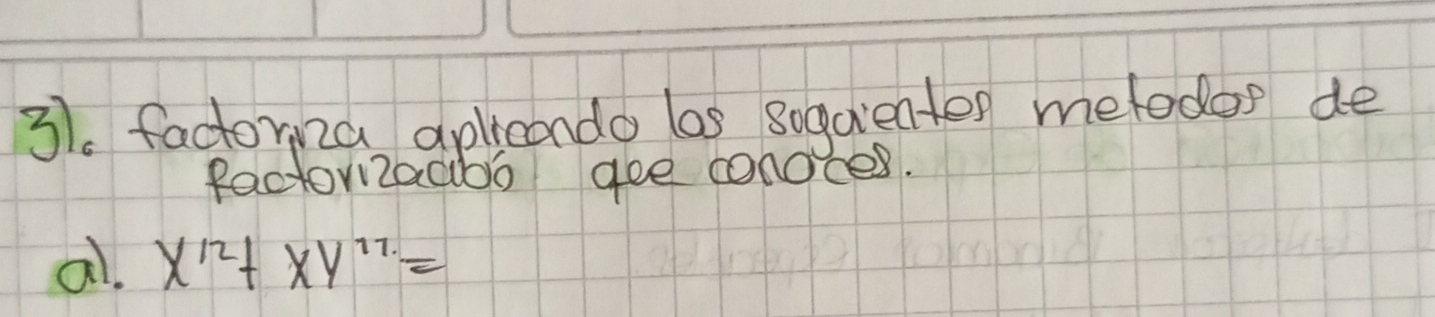 3). factoriza aplicando los siguientes metodos de
factorización que conoces.
a). x¹² + xy¹¹ =